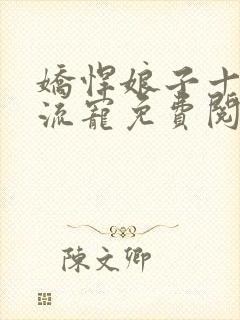 嬌悍娘子十
流寵免費閱
陳文卿